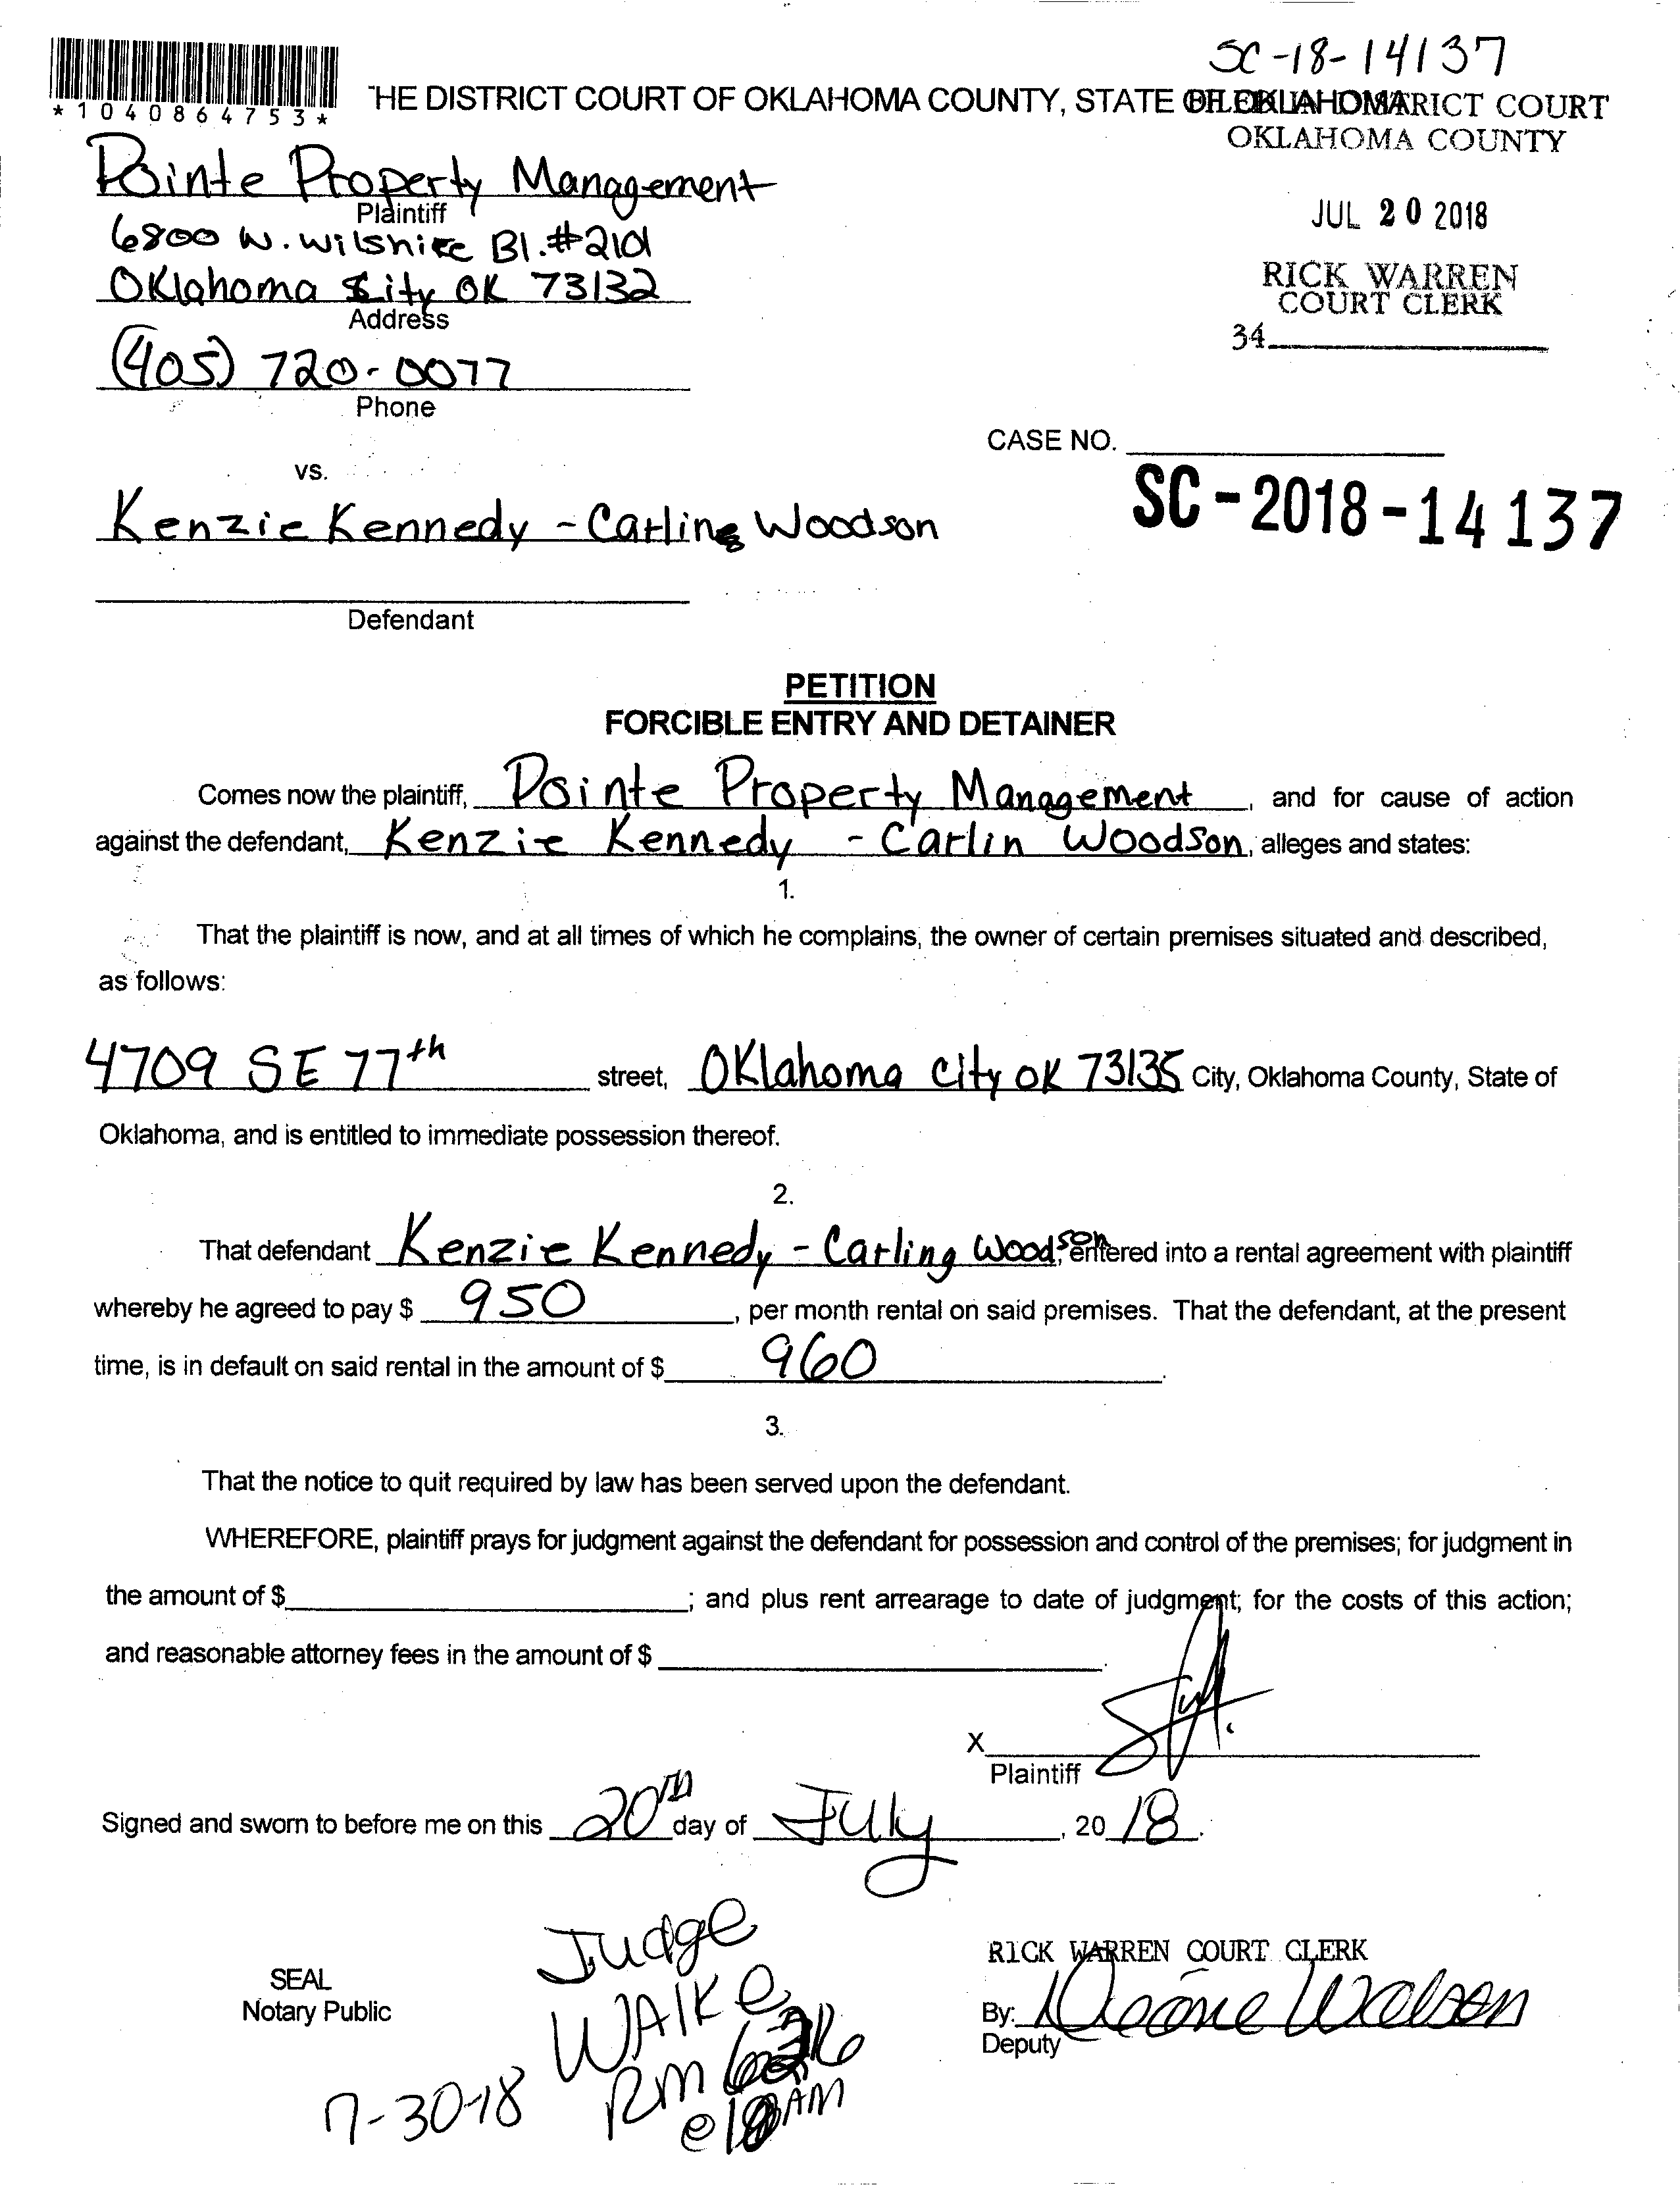 SC-18-14137
*1040864753*
THE DISTRICT COURT OF OKLAHOMA COUNTY, STATE OF OKLAHOMA
FILED IN DISTRICT COURT
OKLAHOMA COUNTY
Pointe Property Management
Plaintiff
JUL 20 2018
6800 W. Wilshire Bl. #2101
Oklahoma City OK 73132
Address
RICK WARREN
COURT CLERK
34
(405) 720-0077
Phone
CASE NO.
SC-2018-14137
vs.
Kenzie Kennedy - Carling Woodson
Defendant
PETITION
FORCIBLE ENTRY AND DETAINER
Comes now the plaintiff, Pointe Property Management, and for cause of action
against the defendant, Kenzie Kennedy - Carlin Woodson, alleges and states:
1.
That the plaintiff is now, and at all times of which he complains, the owner of certain premises situated and described,
as follows:
4709 SE 77th street, Oklahoma City OK 73135 City, Oklahoma County, State of
Oklahoma, and is entitled to immediate possession thereof.
2.
That defendant Kenzie Kennedy - Carling Woodson entered into a rental agreement with plaintiff
whereby he agreed to pay $ 950, per month rental on said premises. That the defendant, at the present
time, is in default on said rental in the amount of $ 960.
3.
That the notice to quit required by law has been served upon the defendant.
WHEREFORE, plaintiff prays for judgment against the defendant for possession and control of the premises; for judgment in
the amount of $ ; and plus rent arrearage to date of judgment; for the costs of this action;
and reasonable attorney fees in the amount of $ .
X
Plaintiff
Signed and sworn to before me on this 20TH day of July, 2018.
SEAL
Notary Public
Judge
WAlKe
RM
AM
7-30-18
RICK WARREN COURT CLERK
By:
Deputy